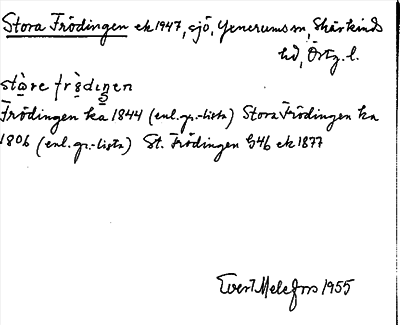 Stora Frödingen ek 1947, sjö, Yxnerums sn, Skärkinds
hd, Östg. l.
stòre frèdıŋen
Frödingen ka 1844 (enl. gr.-lista) Stora Frödingen ka
1806 (enl. gr.-lista) St. Frödingen G46 ek 1877
Evert Melefors 1955